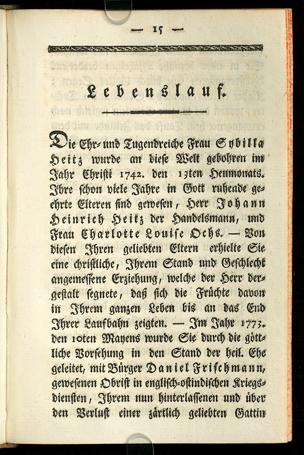 — 15 —
Lebenslauf.
Die Ehr- und Tugendreiche Frau Sybilla
Heitz wurde an diese Welt gebohren im
Jahr Christi 1742. den 13ten Heumonats.
Ihre schon viele Jahre in Gott ruhende ge-
ehrte Elteren sind gewesen, Herr Johann
Heinrich Heitz der Handelsmann, und
Frau Charlotte Louise Ochs. — Von
diesen Ihren geliebten Eltern erhielte Sie
eine christliche, Ihrem Stand und Geschlecht
angemessene Erziehung, welche der Herr der-
gestalt segnete, daß sich die Früchte davon
in Ihrem ganzen Leben bis an das End
Ihrer Laufbahn zeigten. — Im Jahr 1773.
den 10ten Mayens wurde Sie durch die gött-
liche Vorsehung in den Stand der heil. Ehe
geleitet, mit Bürger Daniel Frischmann,
gewesenen Obrist in englisch-ostindischen Kriegs-
diensten, Ihrem nun hinterlassenen und über
den Verlust einer zärtlich geliebten Gattin